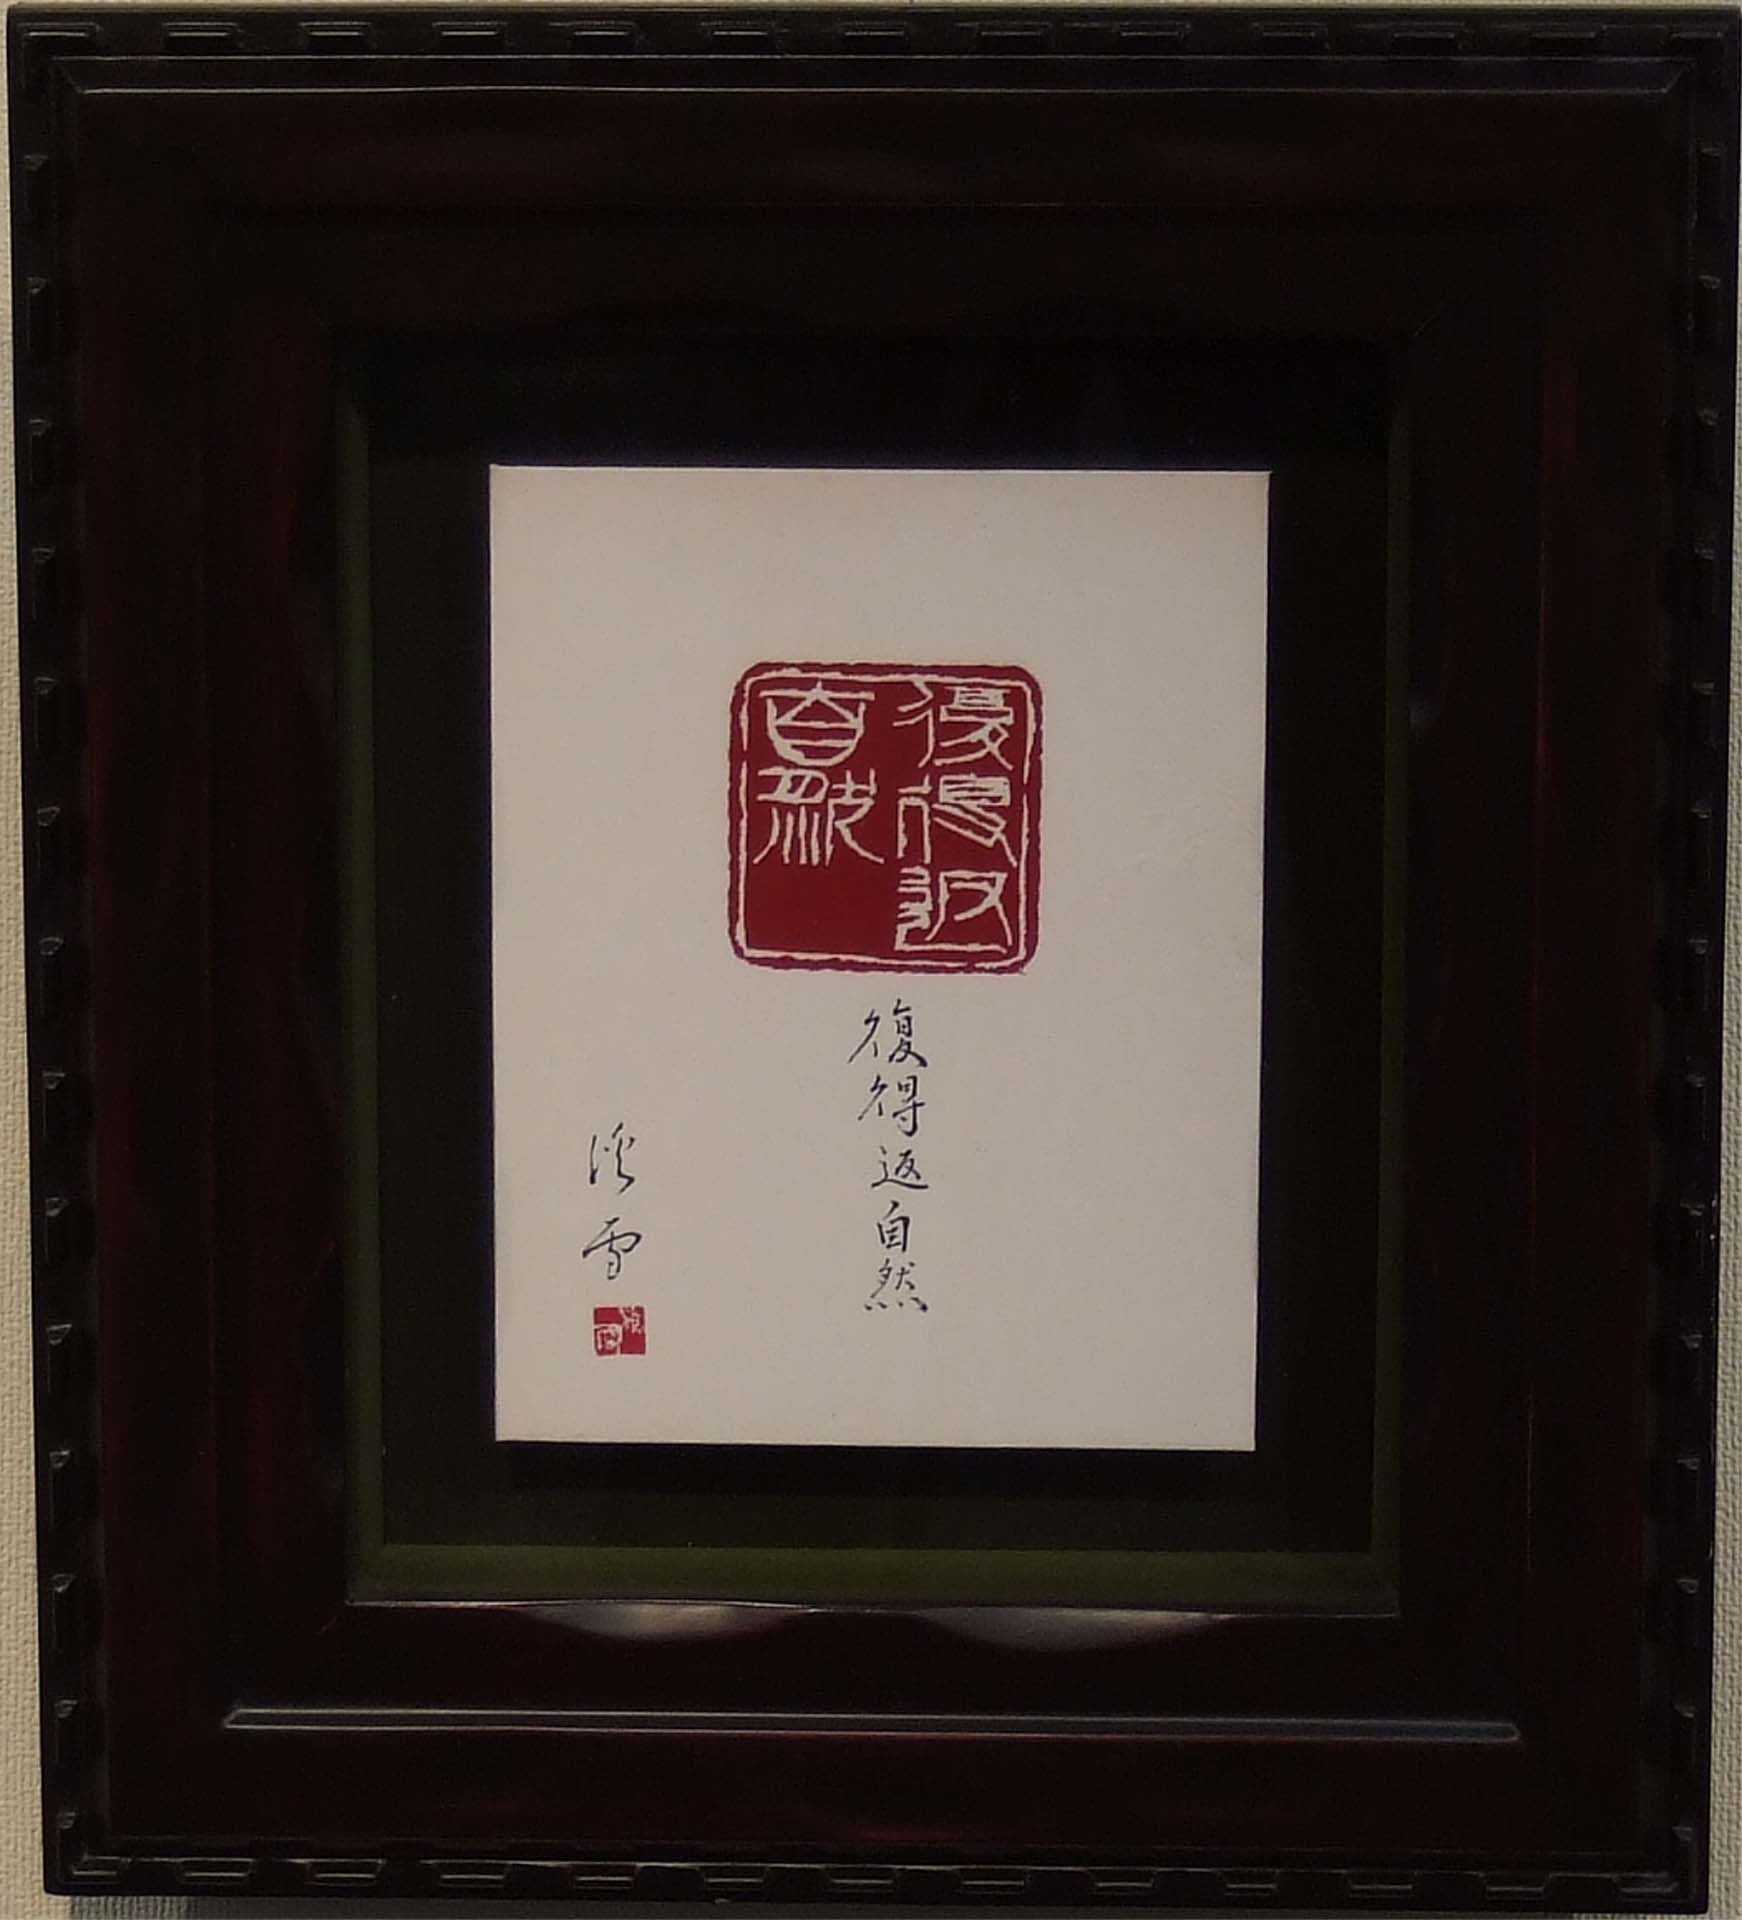 復得返
自然
復得返自然
溪雪